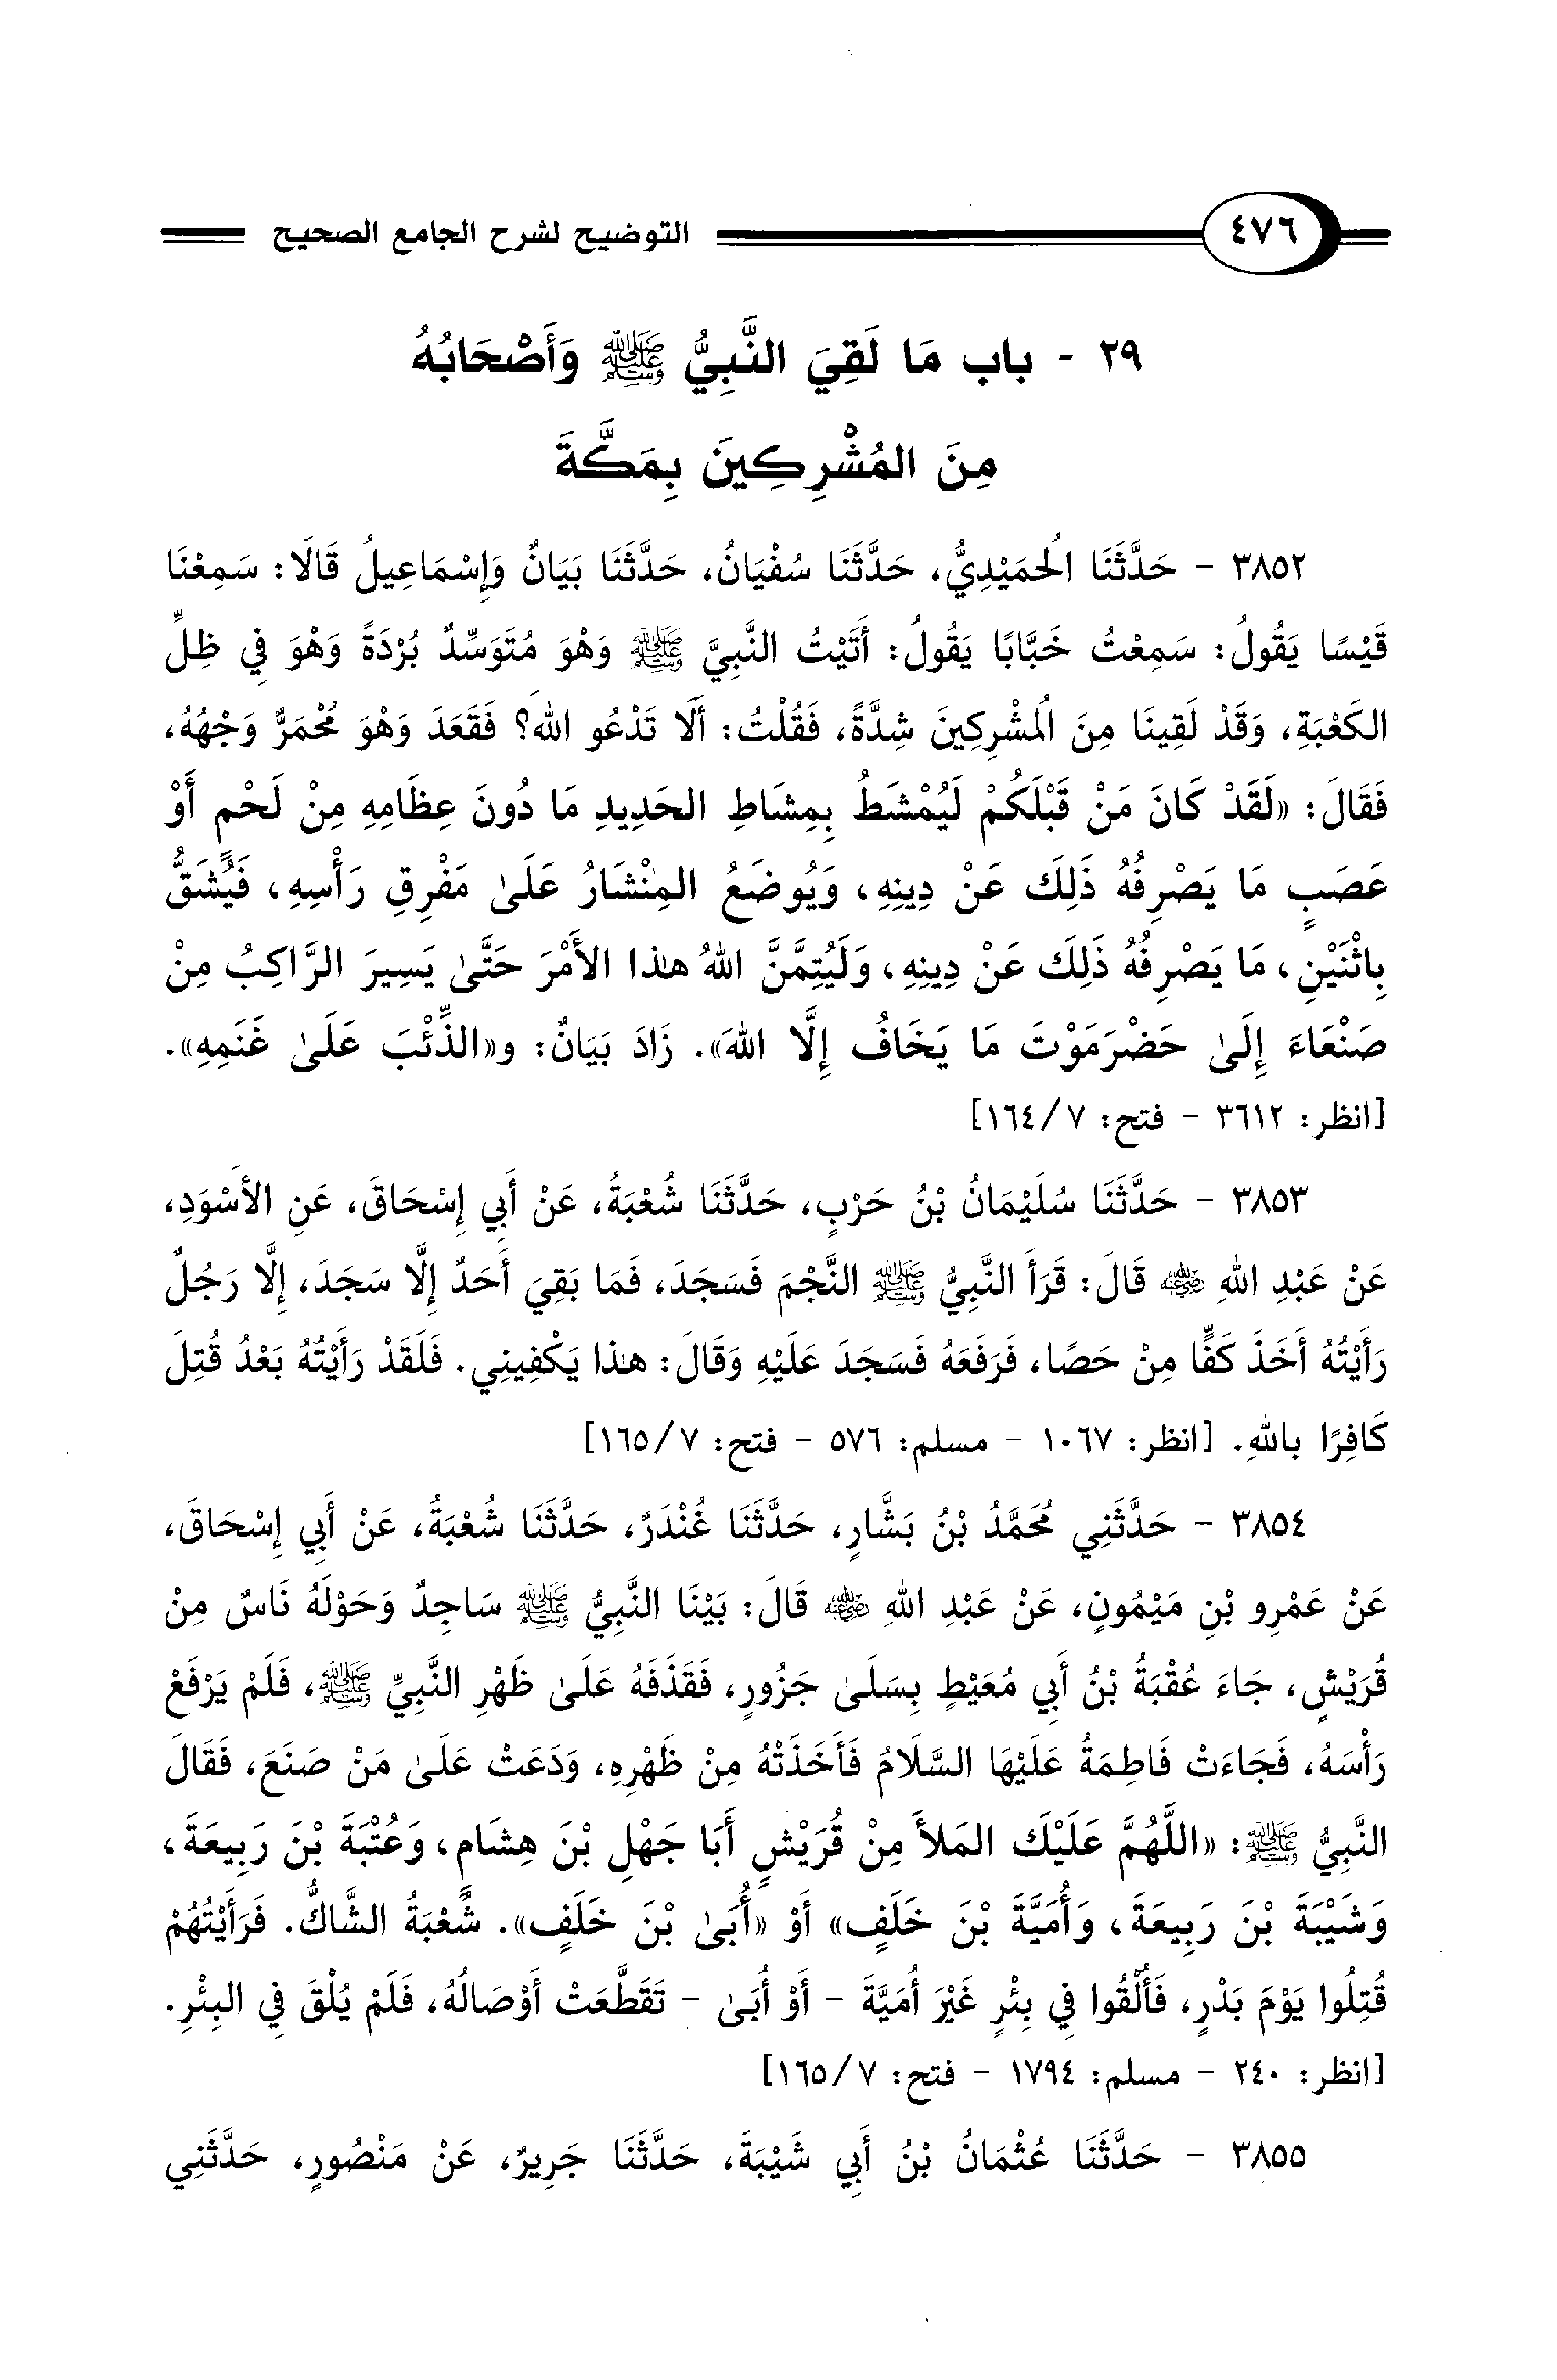 ٤٧٦ التوضيح لشرح الجامع الصحيح
٢٩ - باب مَا لَقِيَ النَّبِيُّ ﷺ وَأَصْحَابُهُ
مِنَ المُشْرِكِينَ بِمَكَّةَ
٣٨٥٢ - حَدَّثَنَا الُحمَيْدِيُّ، حَدَّثَنَا سُفْيَانُ، حَدَّثَنَا بَيَانٌ وَإِسْمَاعِيلُ قَالَا: سَمِعْنَا
قَيْسًا يَقُولُ: سَمِعْتُ خَبَّابًا يَقُولُ: أَتَيْتُ النَّبِيَّ ﷺ وَهْوَ مُتَوَسِّدٌ بُرْدَةً وَهْوَ فِي ظِلِّ
الكَعْبَةِ، وَقَدْ لَقِينَا مِنَ الُمشْرِكِينَ شِدَّةً، فَقُلْتُ: أَلَا تَدْعُو اللهَ؟ فَقَعَدَ وَهْوَ مُحْمَرٌّ وَجْهُهُ،
فَقَالَ: «لَقَدْ كَانَ مَنْ قَبْلَكُمْ لَيُمْشَطُ بِمِشَاطِ الحَدِيدِ مَا دُونَ عِظَامِهِ مِنْ لَحْمٍ أَوْ
عَصَبٍ مَا يَصْرِفُهُ ذَلِكَ عَنْ دِينِهِ، وَيُوضَعُ المِنْشَارُ عَلَىٰ مَفْرِقِ رَأْسِهِ، فَيُشَقُّ
بِاثْنَيْنِ، مَا يَصْرِفُهُ ذَلِكَ عَنْ دِينِهِ، وَلَيُتِمَّنَّ اللهُ هذا الأَمْرَ حَتَّىٰ يَسِيرَ الرَّاكِبُ مِنْ
صَنْعَاءَ إِلَىٰ حَضْرَمَوْتَ مَا يَخَافُ إِلَّا اللهَ». زَادَ بَيَانٌ: و«الذِّئْبَ عَلَىٰ غَنَمِهِ».
[انظر: ٣٦١٢ - فتح: ٧/ ١٦٤]
٣٨٥٣ - حَدَّثَنَا سُلَيْمَانُ بْنُ حَرْبٍ، حَدَّثَنَا شُعْبَةُ، عَنْ أَبِي إِسْحَاقَ، عَنِ الأَسْوَدِ،
عَنْ عَبْدِ اللهِ رضي الله عنه قَالَ: قَرَأَ النَّبِيُّ ﷺ النَّجْمَ فَسَجَدَ، فَمَا بَقِيَ أَحَدٌ إِلَّا سَجَدَ، إِلَّا رَجُلٌ
رَأَيْتُهُ أَخَذَ كَفًّا مِنْ حَصًا، فَرَفَعَهُ فَسَجَدَ عَلَيْهِ وَقَالَ: هذا يَكْفِينِي. فَلَقَدْ رَأَيْتُهُ بَعْدُ قُتِلَ
كَافِرًا بِاللهِ. [انظر: ١٠٦٧ - مسلم: ٥٧٦ - فتح: ٧/ ١٦٥]
٣٨٥٤ - حَدَّثَنِي مُحَمَّدُ بْنُ بَشَّارٍ، حَدَّثَنَا غُنْدَرٌ، حَدَّثَنَا شُعْبَةُ، عَنْ أَبِي إِسْحَاقَ،
عَنْ عَمْرِو بْنِ مَيْمُونٍ، عَنْ عَبْدِ اللهِ رضي الله عنه قَالَ: بَيْنَا النَّبِيُّ ﷺ سَاجِدٌ وَحَوْلَهُ نَاسٌ مِنْ
قُرَيْشٍ، جَاءَ عُقْبَةُ بْنُ أَبِي مُعَيْطٍ بِسَلَىٰ جَزُورٍ، فَقَذَفَهُ عَلَىٰ ظَهْرِ النَّبِيِّ ﷺ، فَلَمْ يَرْفَعْ
رَأْسَهُ، فَجَاءَتْ فَاطِمَةُ عَلَيْهَا السَّلَامُ فَأَخَذَتْهُ مِنْ ظَهْرِهِ، وَدَعَتْ عَلَىٰ مَنْ صَنَعَ، فَقَالَ
النَّبِيُّ ﷺ: «اللَّهُمَّ عَلَيْكَ المَلأَ مِنْ قُرَيْشٍ أَبَا جَهْلِ بْنَ هِشَامٍ، وَعُتْبَةَ بْنَ رَبِيعَةَ،
وَشَيْبَةَ بْنَ رَبِيعَةَ، وَأُمَيَّةَ بْنَ خَلَفٍ» أَوْ «أُبَىٰ بْنَ خَلَفٍ». شُعْبَةُ الشَّاكُّ. فَرَأَيْتُهُمْ
قُتِلُوا يَوْمَ بَدْرٍ، فَأُلْقُوا فِي بِئْرٍ غَيْرَ أُمَيَّةَ - أَوْ أُبَىٰ - تَقَطَّعَتْ أَوْصَالُهُ، فَلَمْ يُلْقَ فِي البِئْرِ.
[انظر: ٢٤٠ - مسلم: ١٧٩٤ - فتح: ٧/ ١٦٥]
٣٨٥٥ - حَدَّثَنَا عُثْمَانُ بْنُ أَبِي شَيْبَةَ، حَدَّثَنَا جَرِيرٌ، عَنْ مَنْصُورٍ، حَدَّثَنِي